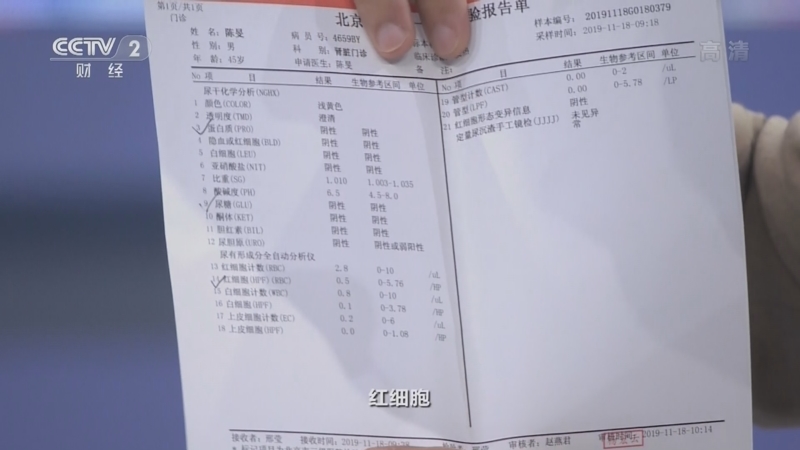 CCTV 2
财经
高清
第1页/共1页
门诊
北京 验报告单
样本编号: 20191118G0180379
采样时间: 2019-11-18-09:18
姓 名: 陈旻 病员号: 4659BY
性 别: 男 科 别: 肾脏门诊
年 龄: 45岁 申请医生: 陈旻 备 注:
No 项 目 结果 生物参考区间 单位
尿干化学分析(NGHX)
1 颜色(COLOR) 浅黄色
2 透明度(TMD) 澄清
3 蛋白质(PRO) 阴性 阴性
4 隐血或红细胞(BLD) 阴性 阴性
5 白细胞(LEU) 阴性 阴性
6 亚硝酸盐(NIT) 阴性 阴性
7 比重(SG) 1.010 1.003-1.035
8 酸碱度(PH) 6.5 4.5-8.0
9 尿糖(GLU) 阴性 阴性
10 酮体(KET) 阴性 阴性
11 胆红素(BIL) 阴性 阴性
12 尿胆原(URO) 阴性 阴性或弱阳性
尿有形成分全自动分析仪
13 红细胞计数(RBC) 2.8 0-10 /uL
14 红细胞(HPF)(RBC) 0.5 0-5.76 /HP
15 白细胞计数(WBC) 0.8 0-10 /uL
16 白细胞(HPF) 0.1 0-3.78 /HP
17 上皮细胞计数(EC) 0.2 0-6 /uL
18 上皮细胞(HPF) 0.0 0-1.08 /HP
No 项 目 结果 生物参考区间 单位
19 管型计数(CAST) 0.00 0-2 /uL
20 管型(LPF) 0.00 0-5.78 /LP
21 红细胞形态变异信息 阴性
定量尿沉渣手工镜检(JJJJ) 未见异
常
红细胞
接收者: 邢莹 接收时间: 2019-11-18-09:38 审核者: 赵燕君 审核时间: 2019-11-18-10:14